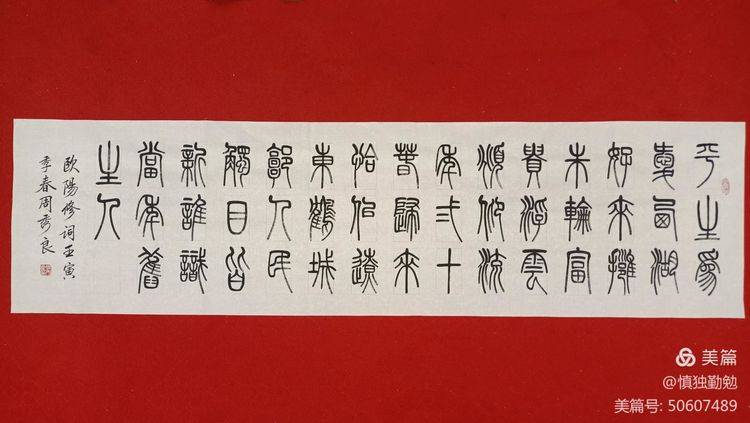 平生為
愛西湖
好來擁
朱輪富
貴浮雲
頫仰流
年弍十
春歸來
恰佀遼
東鶴城
郭人民
觸目皆
新誰識
當年舊
主人
歐陽修詞壬寅
季春周秀良
美篇
@慎独勤勉
美篇号: 50607489